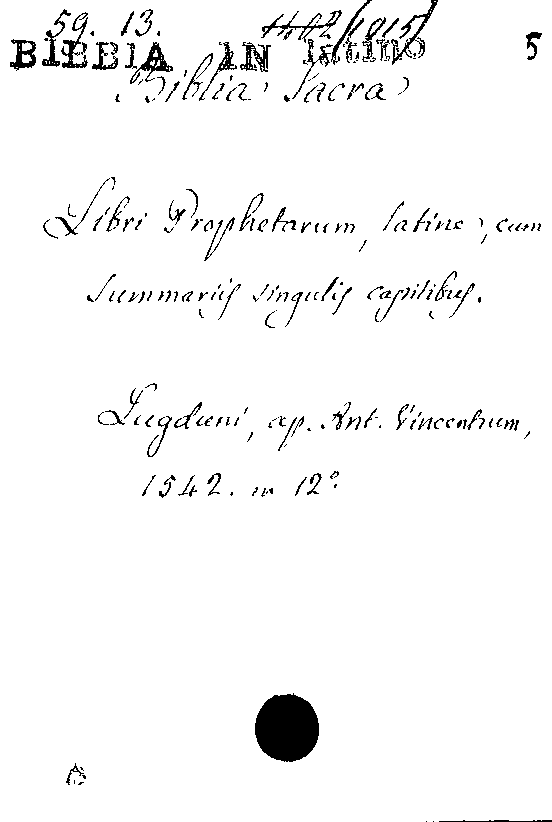 59. 13. 1402 (1815)
BIBBIA IN latino 5
Biblia Sacra
Libri Prophetarum, latine, cum
summariis singulis capitibus.
Lugduni, ap. Ant. Vincentium,
1542. in 12°